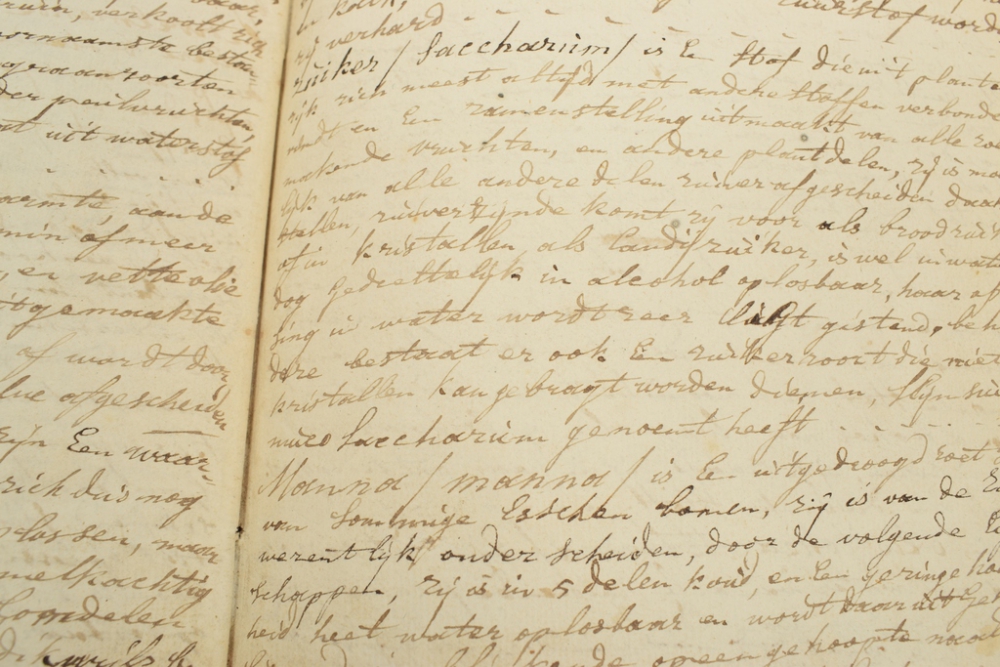 verkoolt zich
voornaamste bestan-
graansoorten
der peulvruchten,
uit waterstof
warmte, aan de
min of meer
en vette olie
uitgemaakte
of wordt door
afgescheiden
zijn Een waar-
zich dus nog
lossen, maar
melkachtig
Comdelen
zuurstof word
zij verhard
zuiker / saccharium / is En stof die uit plante
rijk zich meest altijd met andere stoffen verbonde
vindt en Een zamenstelling uitmaakt van alle zoe
makende vruchten, en andere plantdelen, zij is moe
lijk van alle andere delen zuiver afgescheiden daar
stellen, zuiverzijnde komt zij voor als broodzuik
of in kristallen, als Candijzuiker, is wel in wate
dog gedeeltelijk in alcohol oplosbaar, haar op
sing in water wordt zeer ligt gistend, beh
dere bestaat er ook En zuikerzoort die niet
kristallen kan gebragt worden diemen, slijm sui
muco saccharium genoemt heeft
Manna / manna / is En uitgedroogd zoet
van sommige Esschen bomen, zij is van de
wezentlijk onderscheiden, door de volgende E
schappen, zij is in 5 delen koud, en Een geringe hoe
heid heet water oplosbaar en wordt daar uit
opeengehoopte naald